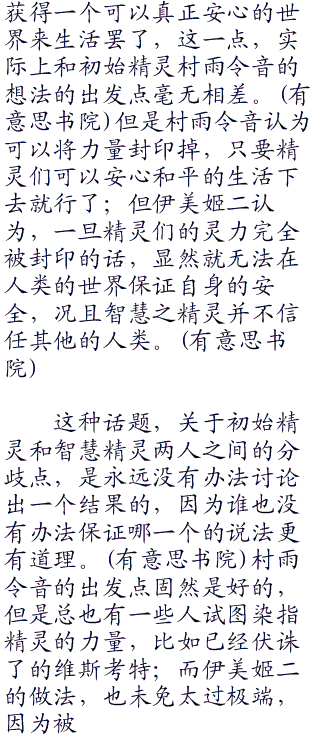 获得一个可以真正安心的世
界来生活罢了，这一点，实
际上和初始精灵村雨令音的
想法的出发点毫无相差。(有
意思书院)但是村雨令音认为
可以将力量封印掉，只要精
灵们可以安心和平的生活下
去就行了；但伊美姬二认
为，一旦精灵们的灵力完全
被封印的话，显然就无法在
人类的世界保证自身的安
全，况且智慧之精灵并不信
任其他的人类。(有意思书
院)
这种话题，关于初始精
灵和智慧精灵两人之间的分
歧点，是永远没有办法讨论
出一个结果的，因为谁也没
有办法保证哪一个的说法更
有道理。(有意思书院)村雨
令音的出发点固然是好的，
但是总也有一些人试图染指
精灵的力量，比如已经伏诛
了的维斯考特；而伊美姬二
的做法，也未免太过极端，
因为被